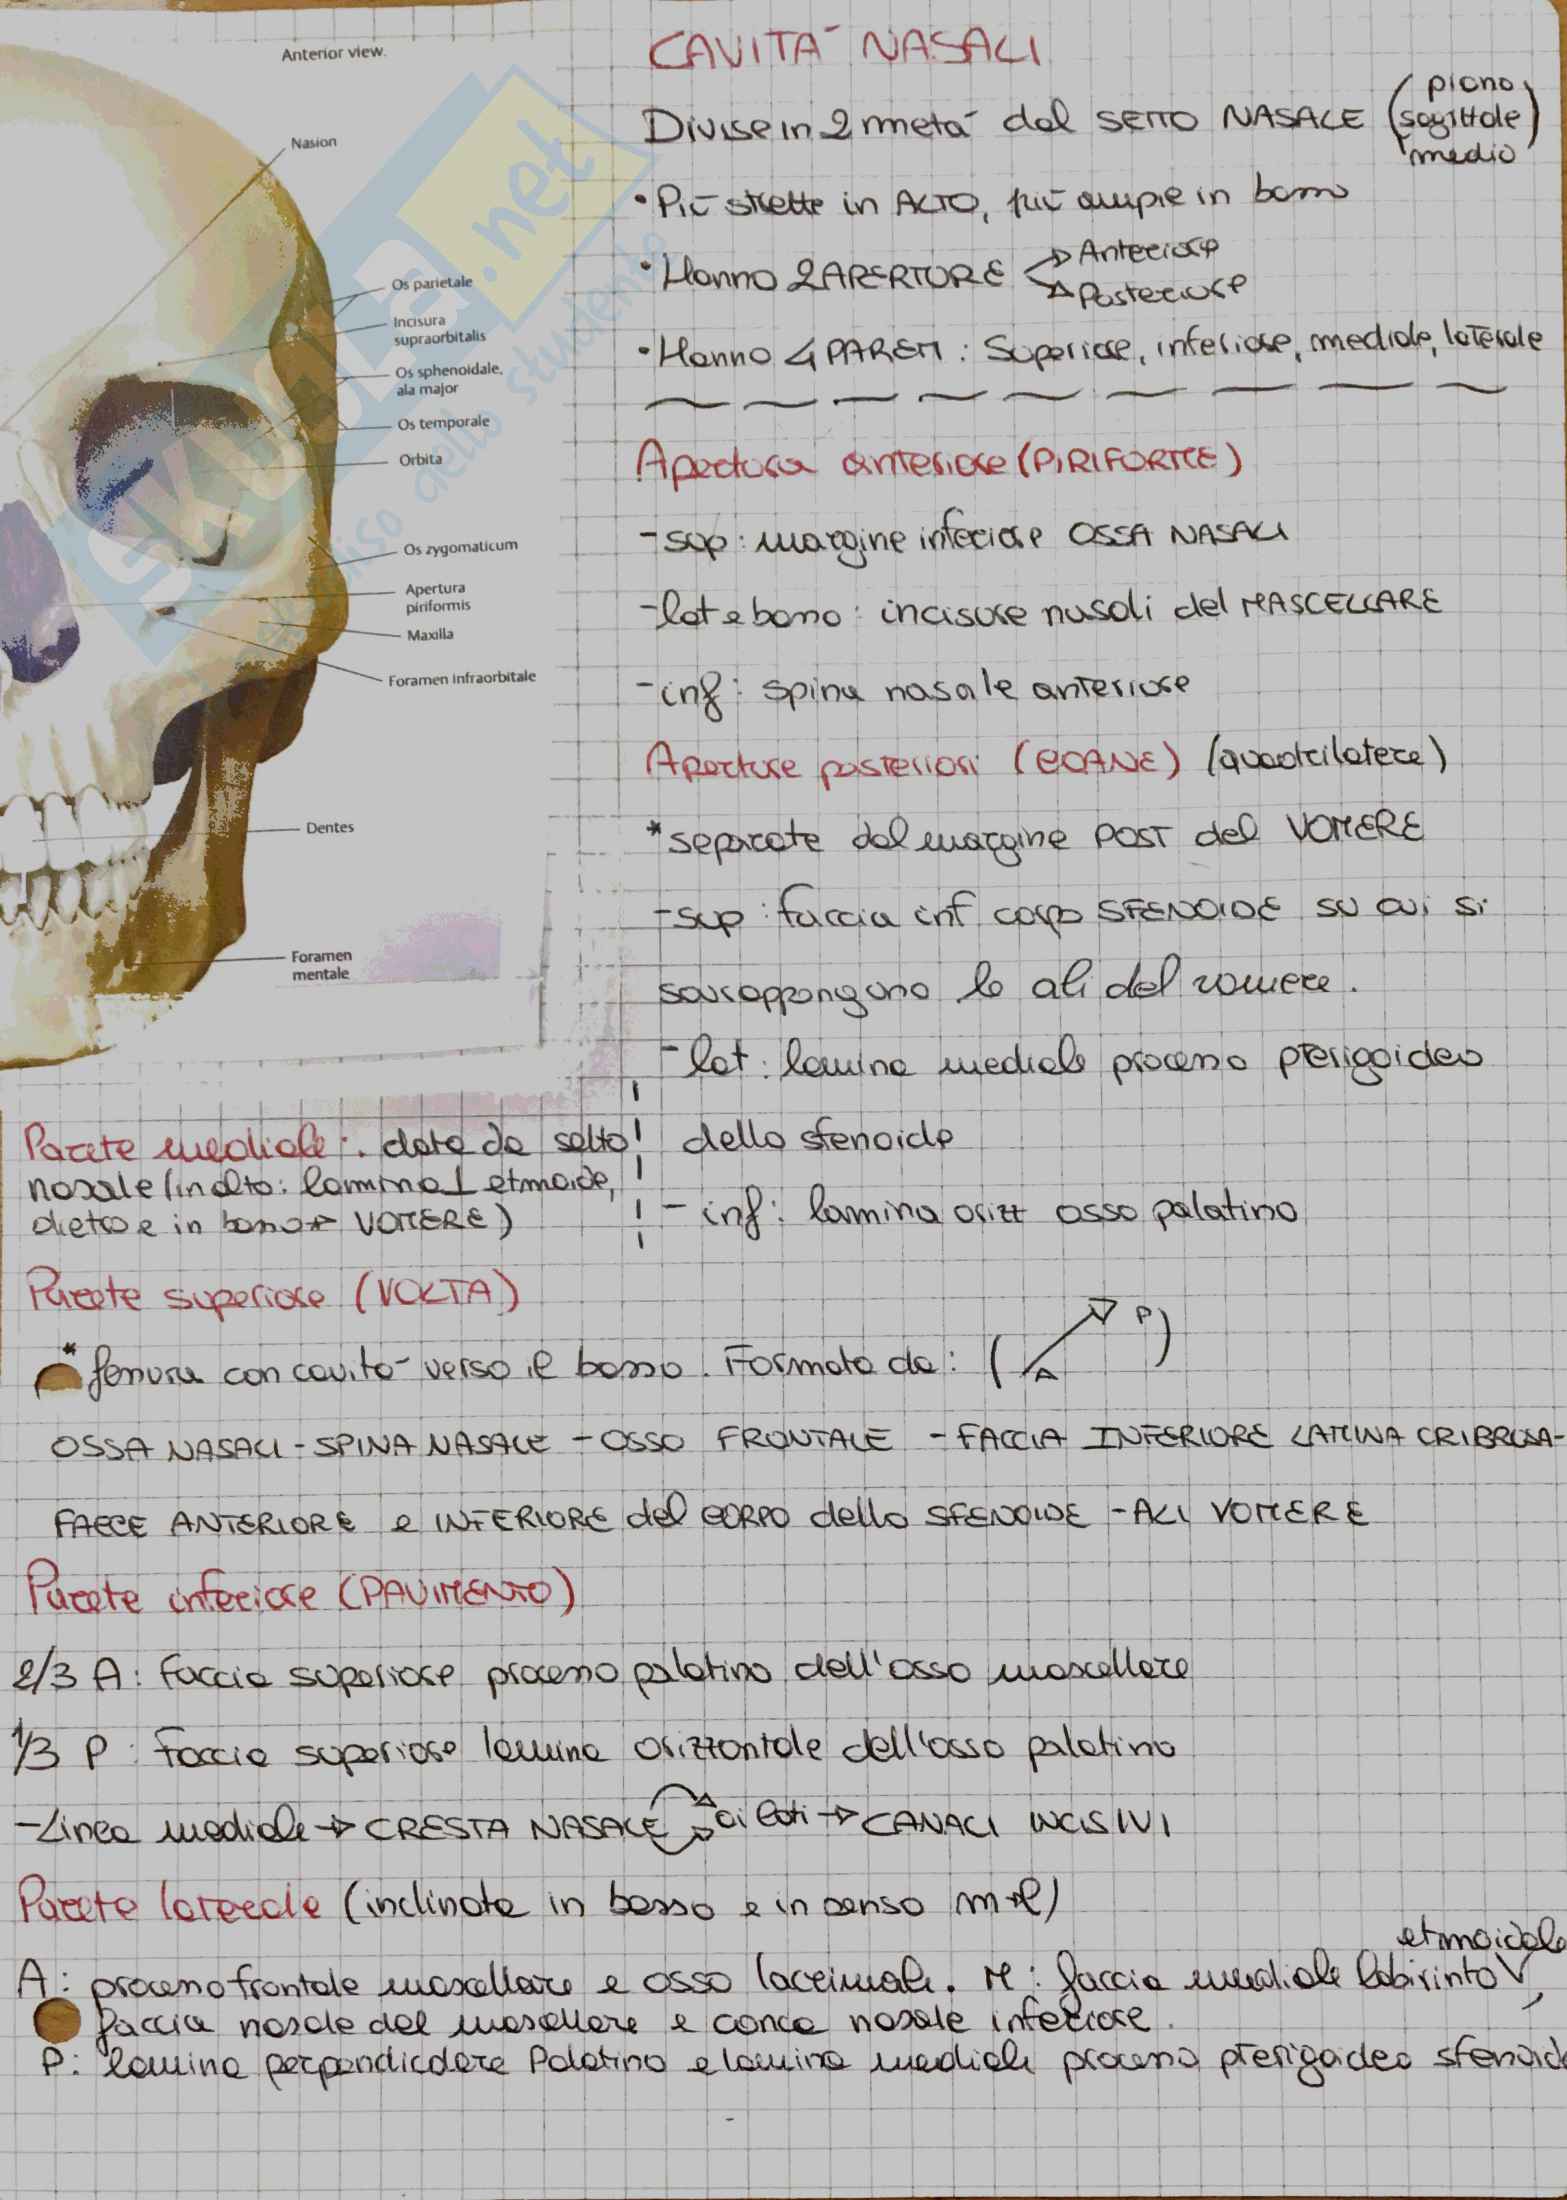 Anterior view.
Nasion
Os parietale
Incisura
supraorbitalis
Os sphenoidale,
ala major
Os temporale
Orbita
Os zygomaticum
Apertura
piriformis
Maxilla
Foramen infraorbitale
Dentes
Foramen
mentale
SKUOLA.net
dello studente
CAVITA' NASALI
Divise in 2 metà dal SETTO NASALE (piano
sagittale
medio)
• Più strette in ALTO, più ampie in basso
• Hanno 2 APERTURE → Anteriore
→ Posteriore
• Hanno 4 PARETI : Superiore, inferiore, mediale, laterale
Apertura anteriore (PIRIFORME)
- sup : margine inferiore OSSA NASALI
- lat e basso : incisure nasali del MASCELLARE
- inf : spina nasale anteriore
Aperture posteriori (COANE) (quadrilatere)
* separate dal margine POST del VOMERE
- sup : faccia inf corpo SFENOIDE su cui si
sovrappongono le ali del vomere.
- lat : lamina mediale processo pterigoideo
dello sfenoide
- inf : lamina orizz osso palatino
Parete mediale : data da setto
nasale (in alto : lamina ⊥ etmoide,
dietro e in basso → VOMERE)
Parete superiore (VOLTA)
* fessura con cavità verso il basso. Formata da : (A → P)
OSSA NASALI - SPINA NASALE - OSSO FRONTALE - FACCIA INFERIORE LAMINA CRIBROSA -
FACCE ANTERIORE e INFERIORE del CORPO dello SFENOIDE - ALI VOMERE
Parete inferiore (PAVIMENTO)
2/3 A : faccia superiore processo palatino dell'osso mascellare
1/3 P : faccia superiore lamina orizzontale dell'osso palatino
- Linea mediale → CRESTA NASALE → ai lati → CANALI INCISIVI
Parete laterale (inclinata in basso e in senso m→l)
A : processo frontale mascellare e osso lacrimale. M : faccia mediale labirinto etmoidale,
faccia nasale del mascellare e conca nasale inferiore.
P : lamina perpendicolare Palatino e lamina mediale processo pterigoideo sfenoide